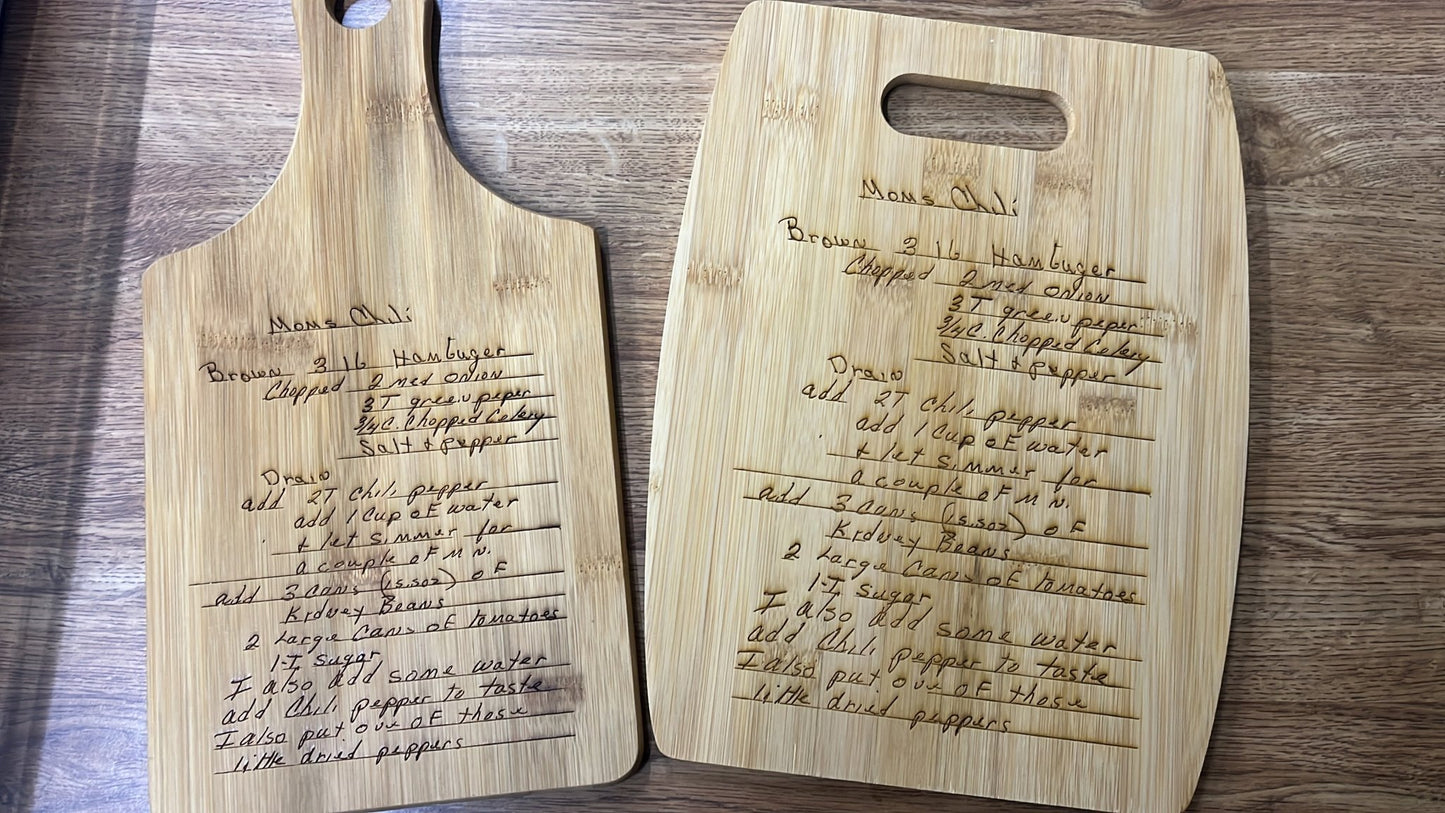 Moms Chili
Brown 3 lb Hambuger
Chopped 2 med onion
3 T green peper
3/4 C. Chopped Celery
Salt & pepper
Drain
add 2T chili pepper
add 1 Cup of water
& let simmer for
a couple of min.
add 3 cans (15.5oz) of
Kidney Beans
2 Large Cans of tomatoes
1-T sugar
I also add some water
add Chili pepper to taste
I also put one of those
little dried peppers
Moms Chili
Brown 3 lb Hambuger
Chopped 2 med onion
3 T green peper
3/4 C. Chopped Celery
Salt & pepper
Drain
add 2T chili pepper
add 1 Cup of water
& let simmer for
a couple of min.
add 3 cans (15.5oz) of
Kidney Beans
2 Large Cans of tomatoes
1-T sugar
I also add some water
add Chili pepper to taste
I also put one of those
little dried peppers